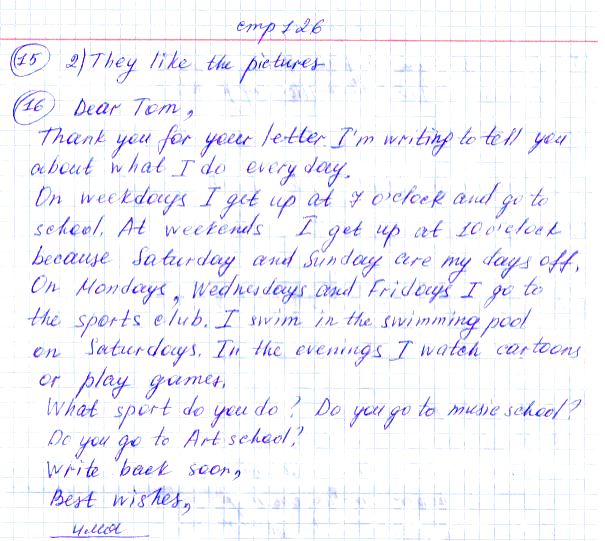 стр 126
15 2) They like the pictures
16 Dear Tom,
Thank you for your letter. I'm writing to tell you
about what I do every day.
On weekdays I get up at 7 o'clock and go to
school. At weekends I get up at 10 o'clock
because Saturday and Sunday are my days off.
On Mondays, Wednesdays and Fridays I go to
the sports club. I swim in the swimming pool
on Saturdays. In the evenings I watch cartoons
or play games.
What sport do you do? Do you go to music school?
Do you go to Art school?
Write back soon,
Best wishes,
имя